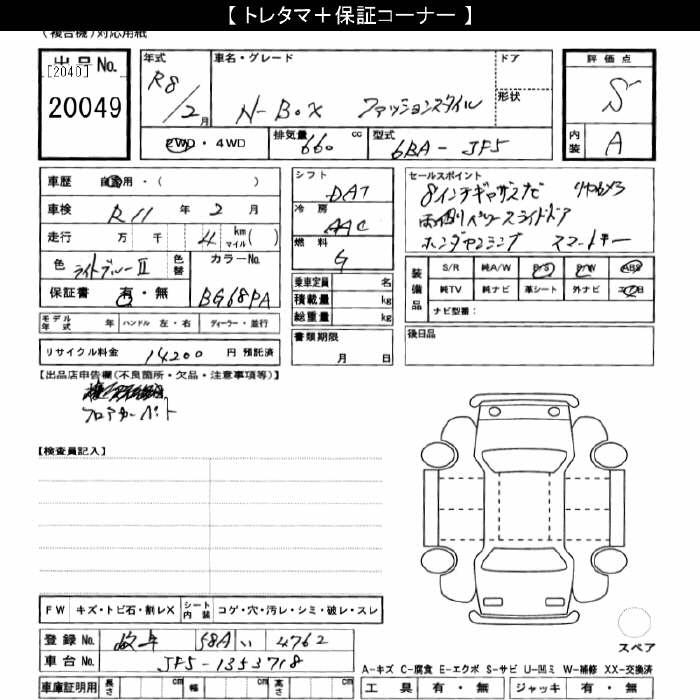 【 トレタマ＋保証コーナー 】
(複合機)対応用紙
出品No.
[2040]
20049
年式 R8/2月
車名・グレード ドア
N-BOX ファッションスタイル 形状
2WD・4WD 排気量 660 cc 型式 6BA-JF5
評価点 S
内装 A
車歴 自家用・( )
車検 R11 年 2 月
走行 万 千 4 km マイル( )
色 ライトブルーII 色替 カラーNo. BG68PA
保証書 有・無
シフト DAT
冷房 AAC
燃料 G
乗車定員 名
積載量 kg
総重量 kg
セールスポイント
8インチギャザズナビ
両側パワースライドドア
ホンダセンシング スマートキー
装備品
S/R 純A/W P/S P/W ABS
純TV 純ナビ 革シート 外ナビ エアB
ナビ型番：
モデル年式 年 ハンドル 左・右 ディーラー・並行
書類期限 月 日
後日品
リサイクル料金 14200 円 預託済
【出品店申告欄(不良箇所・欠品・注意事項等)】
フロアカーペット
【検査員記入】
FW キズ・トビ石・割レX シート内装 コゲ・穴・汚レ・シミ・破レ・スレ
登録No. 岐阜 58A い 4762
車台No. JF5-1353718
車庫証明用 長さ cm 幅 cm 高さ cm
スペア
A-キズ C-腐食 E-エクボ S-サビ U-凹ミ W-補修 XX-交換済
工具 有・無 ジャッキ 有・無